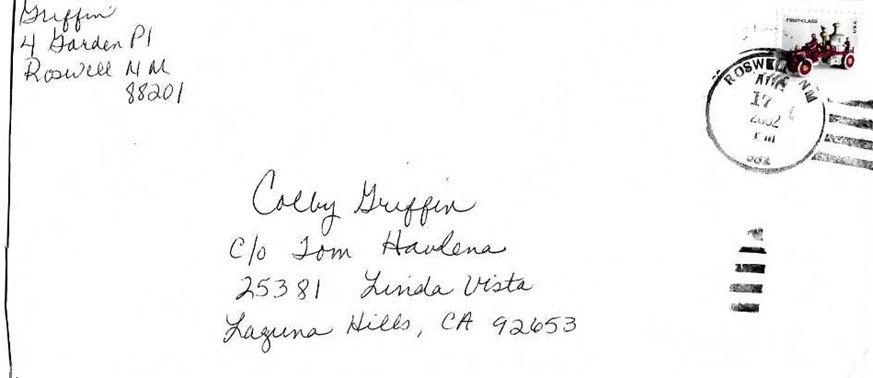 Griffin
4 Garden Pl
Roswell NM
88201
FIRST-CLASS
USA
ROSWELL NM
17
2002
PM
882
Colby Griffin
c/o Tom Havlena
25381 Linda Vista
Laguna Hills, CA 92653